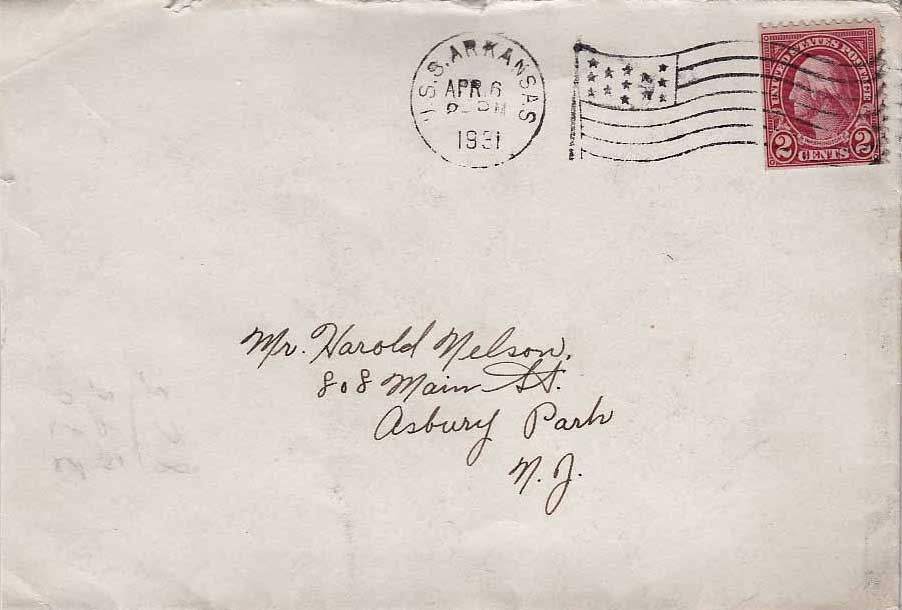 U.S.S. ARKANSAS
APR 6
1931
UNITED STATES POSTAGE
2 CENTS 2
Mr. Harold Nelson,
808 Main St.
Asbury Park
N. J.